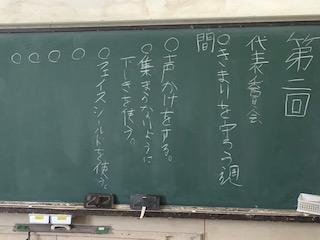 第二回
代表委員会
○きまりを守ろう週
間
○声かけをする。
○集まらないように
下じきを使う。
○フェイスシールドを使う。
○
○
○
○